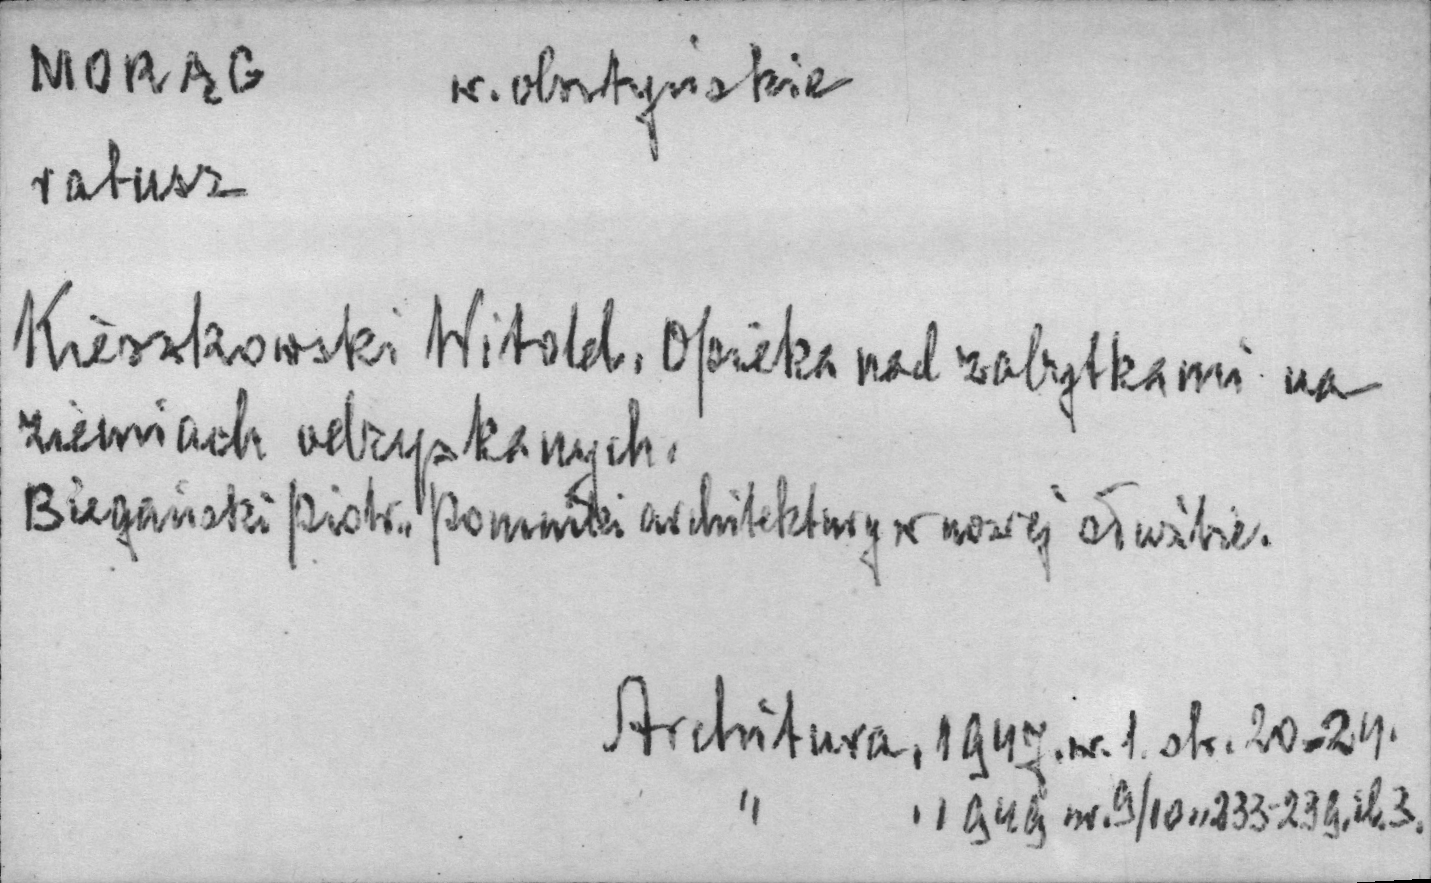 MORĄG w. olsztyńskie
ratusz
Kieszkowski Witold. Opieka nad zabytkami na
ziemiach odzyskanych.
Biegański Piotr. Pomniki architektury w nowej służbie.
Architura, 1947. nr. 1. str. 20-24.
" , 1949 nr. 9/10 " 233-239, il. 3.